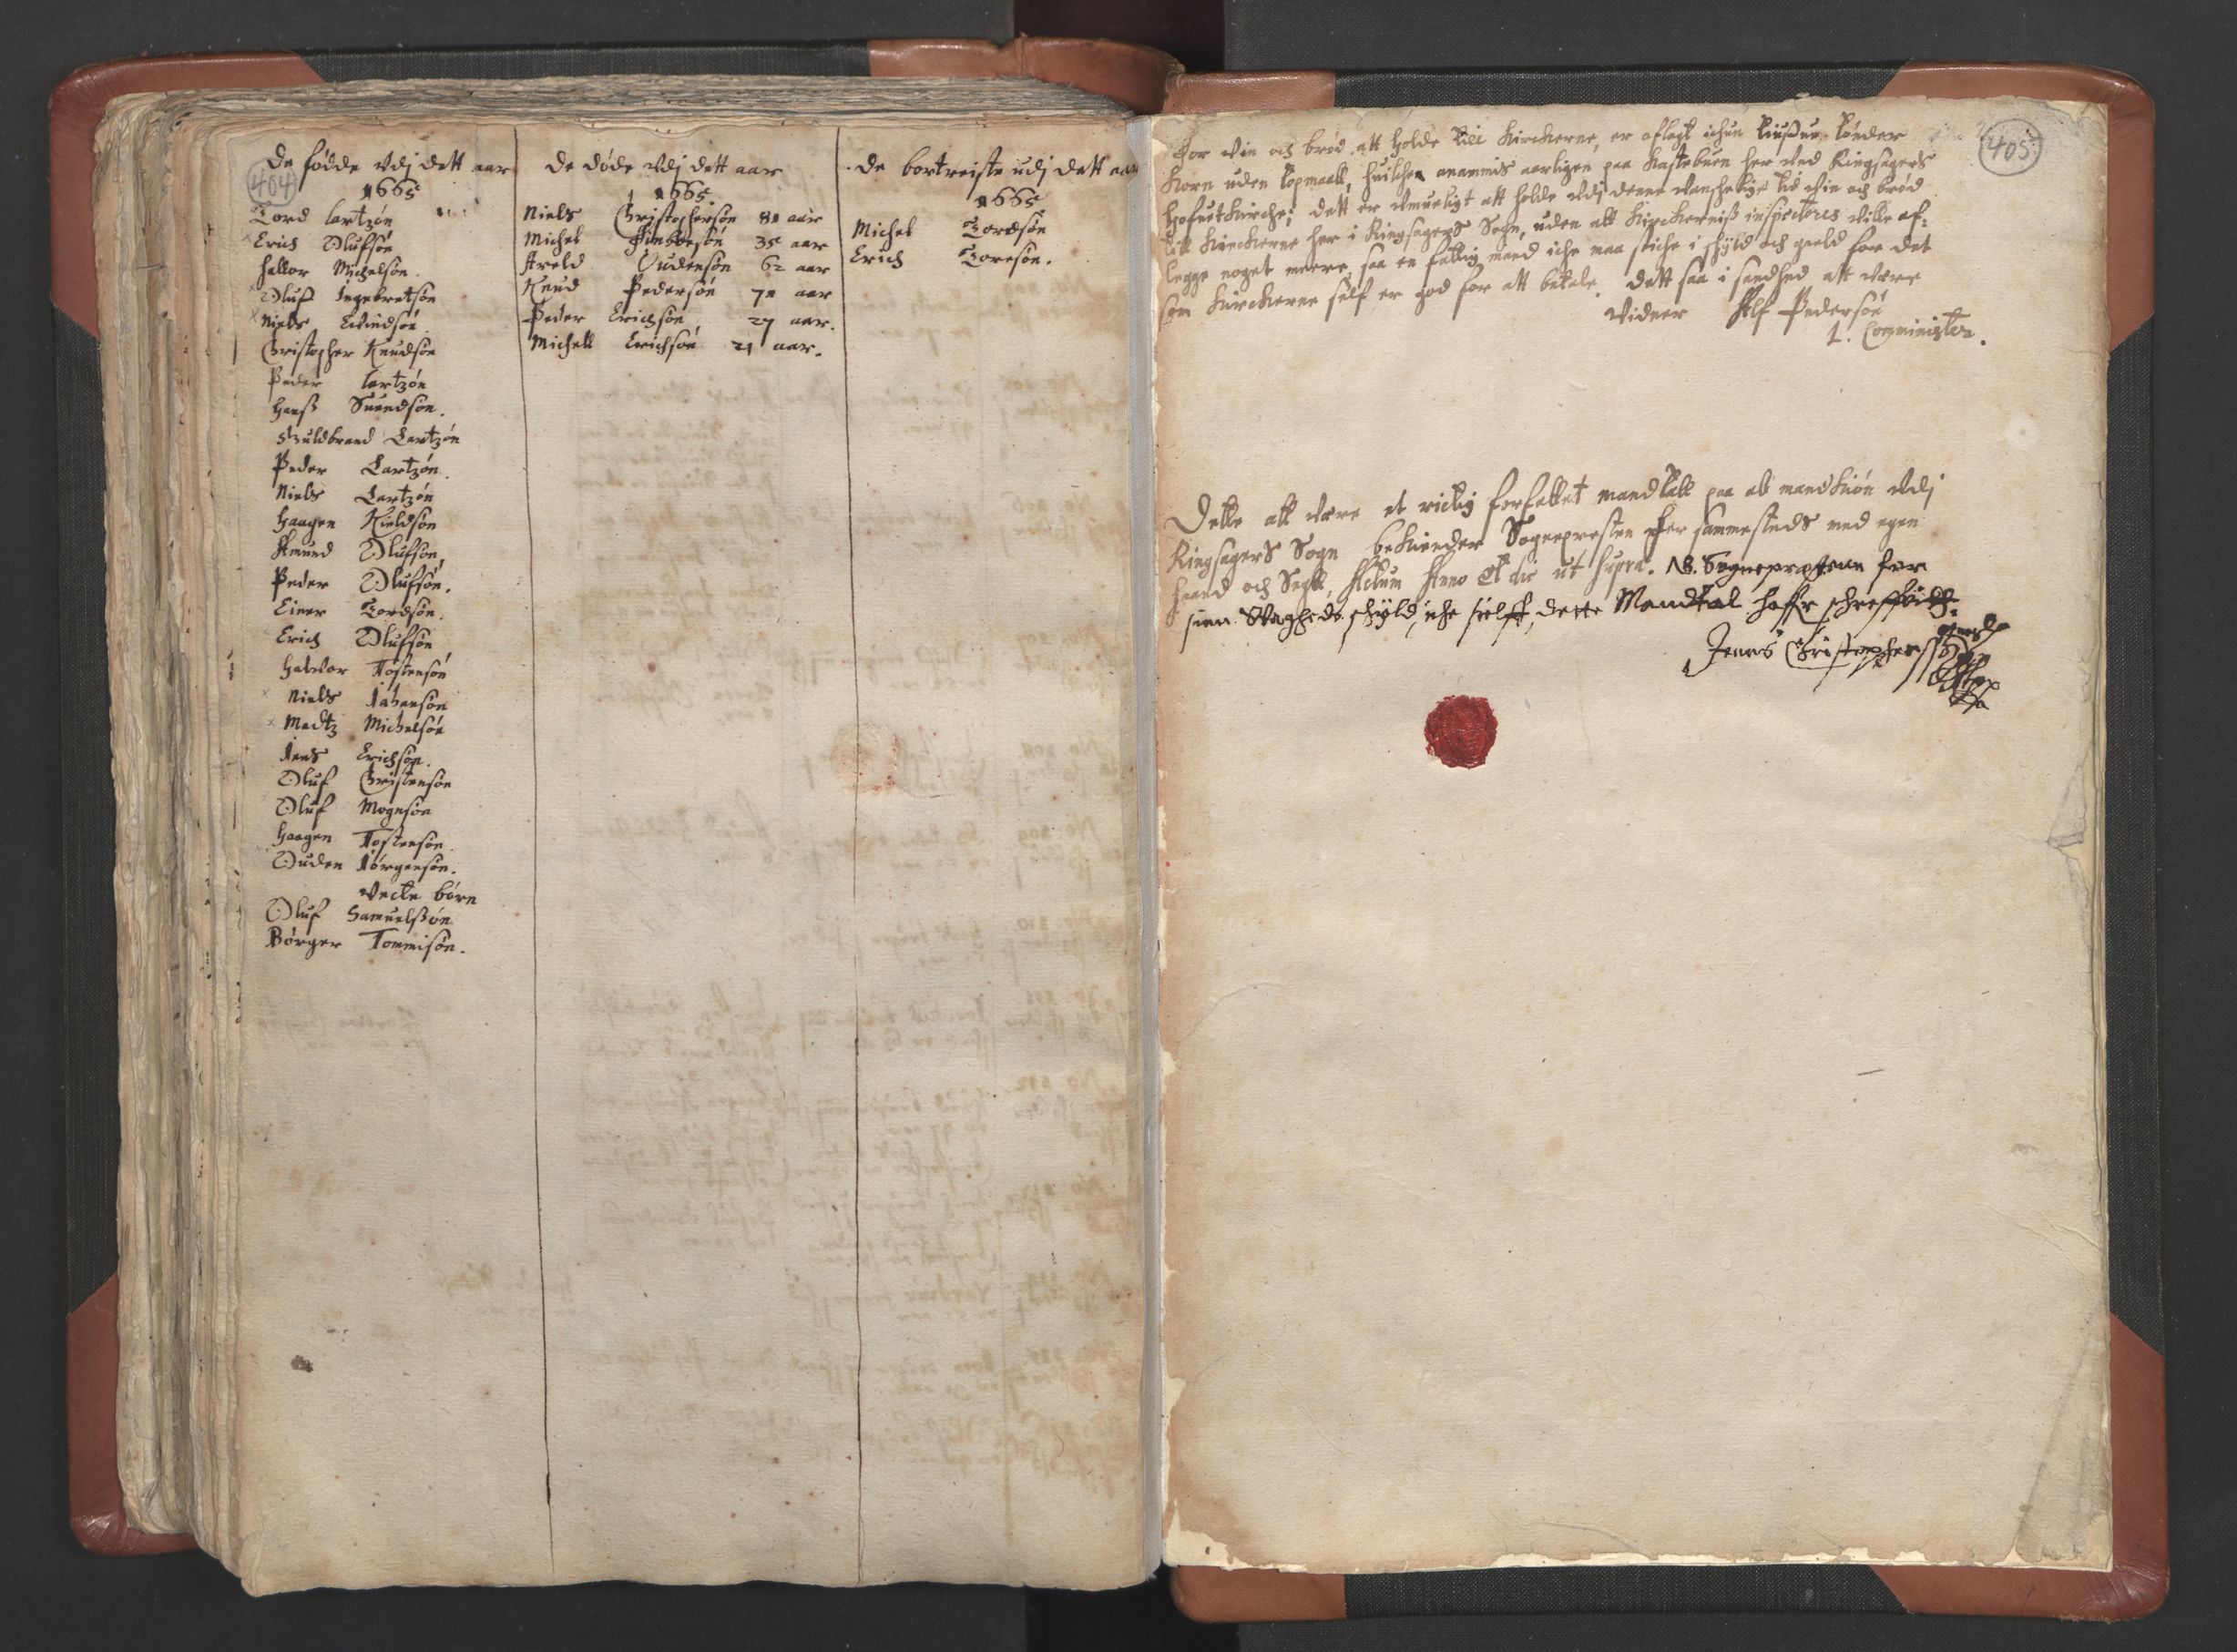 404
De fødde udj dett aar
1665
Tord Lartzøn
Erich Olufsøn
Hallor Michelsøn
Oluf Ingebretsøn
Niels Evindsøn
Christopher Knudsøn
Peder Lartzøn
Hanß Suendsøn.
Guldbrand Lartzøn
Peder Lartzøn
Niels Lartzøn
Haagen Kieldsøn
Amund Olufsøn
Peder Olufsøn.
Einer Tordsøn.
Erich Olufsøn
Halvor Tostensøn
Niels Jahansøn
Madtz Michelsøn
Jens Erichsøn.
Oluf Christensøn
Oluf Mognsøn
Haagen Tostensøn.
Ouden Jørgensøn.
Uecte børn
Oluf Samuelsøn
Børger Tommisøn.
De døde udj dett aar
1665.
Niels Christophersøn 80 aar
Michel 35 aar
Areld Oudensøn 62 aar
Knud Pedersøn 70 aar
Peder Erichsøn 27 aar.
Michell Erichsøn 21 aar.
De bortreiste udj dett aar
1665
Michel Tordsøn
Erich Toresøn.
405
For vin och brød att holde till Kirckerne, er aflagt ichun tønder
Korn uden topmaall, huilche anammis aarligen paa her ved Ringsagers
Hofuitkirche; dett er umueligt att holde udj denne vanskelige tid vin och brød
till Kirckerne her i Ringsagers Sogn, uden att Kirckernis inspectores ville af-
legge noget meere, saa en fattig mand iche maa stiche i skyld och gield for det
som Kirckerne self er god for att betale. Dett saa i sandhed att være
vidner Alf Pedersøn
L. Comminister.
Dette att være et rictig forfattet mandtall paa alt mandkiøn udj
Ringsagers Sogn bekiender Sognepresten her sammesteds med egen
haand och Segll, Actum Anno Et die ut supra. NB. Sognepresten for
sinn Svagheds skyld, iche sielff dette Mandtal haffr
Jenns Christophersøn